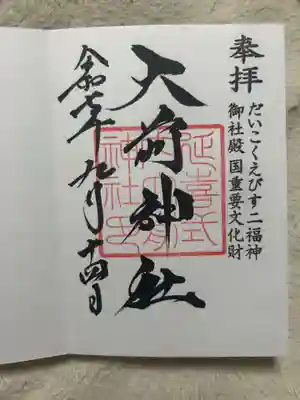 奉拝
だいこくえびす二福神
御社殿国重要文化財
大前神社
令和七年九月十四日
延喜式
神社